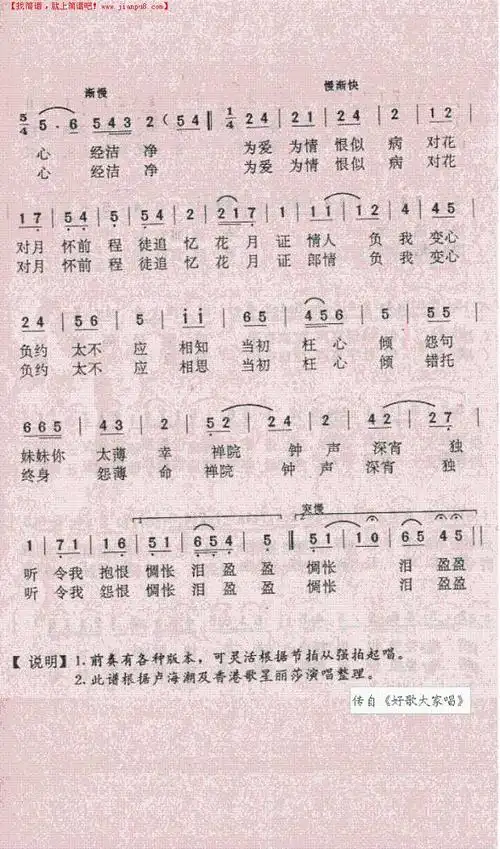 【找简谱，就上简谱吧！www.jianpu8.com】
渐慢 慢渐快
5/4 5·6 543 2 ( 54 ‖ 1/4 24 | 21 | 24 | 2 | 12
心 经洁 净 为爱 为情 恨似 病 对花
心 经洁 净 为爱 为情 恨似 病 对花
17 | 54 | 5 | 54 | 2 | 217 | 1 | 11 | 12 | 4 | 45
对月 怀前 程 徒追 忆 花 月 证 情人 负 我 变心
对月 怀前 程 徒追 忆 花 月 证 郎情 负 我 变心
24 | 56 | 5 | ii | 65 | 456 | 5 | 55
负约 太不 应 相知 当初 枉 心 倾 怨句
负约 太不 应 相思 当初 枉 心 倾 错托
665 | 43 | 2 | 52 | 24 | 2 | 42 | 27
妹妹你 太薄 幸 禅院 钟 声 深宵 独
终身 怨薄 命 禅院 钟 声 深宵 独
突慢
1 | 71 | 16 | 51 | 654 | 5 ‖ 51 | 10 | 65 | 45 ‖
听 令我 抱恨 惆怅 泪盈 盈 惆怅 泪 盈盈
听 令我 怨恨 惆怅 泪盈 盈 惆怅 泪 盈盈
【 说明】1.前奏有各种版本，可灵活根据节拍从强拍起唱。
2.此谱根据卢海潮及香港歌星丽莎演唱整理。
传自《好歌大家唱》